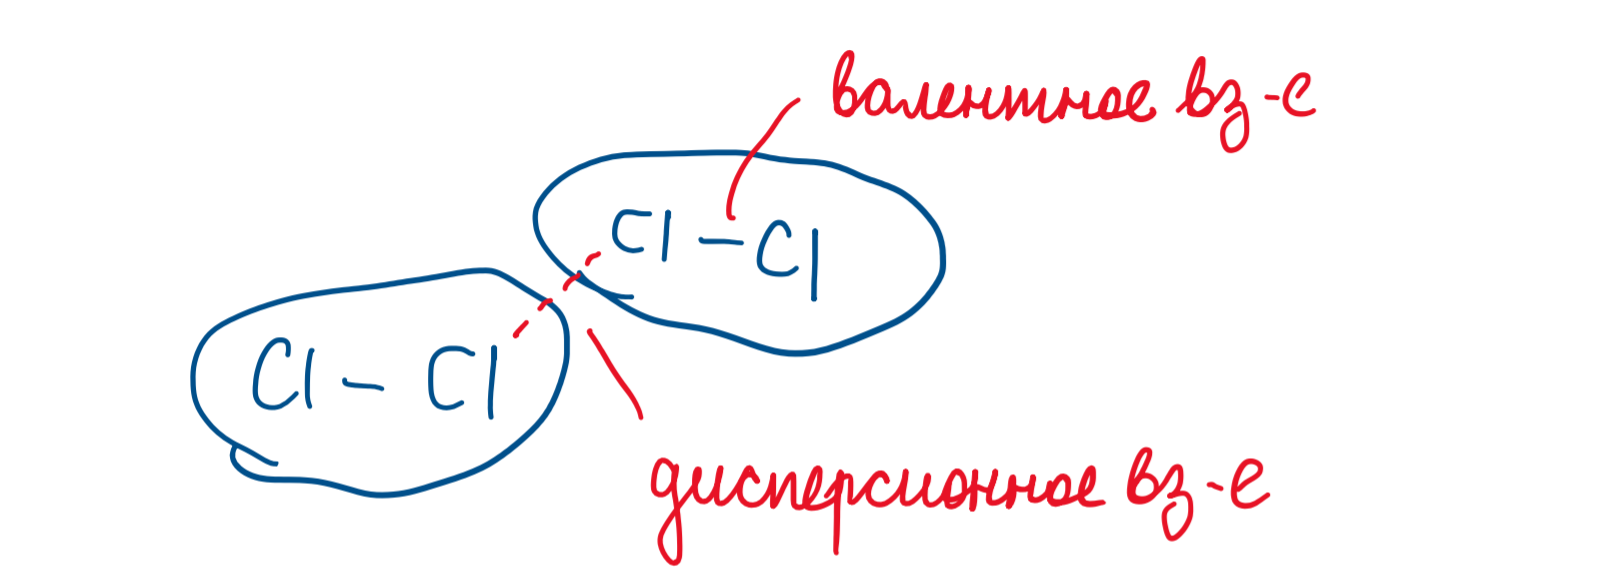 валентное вз-е
Cl – Cl
Cl – Cl
дисперсионное вз-е